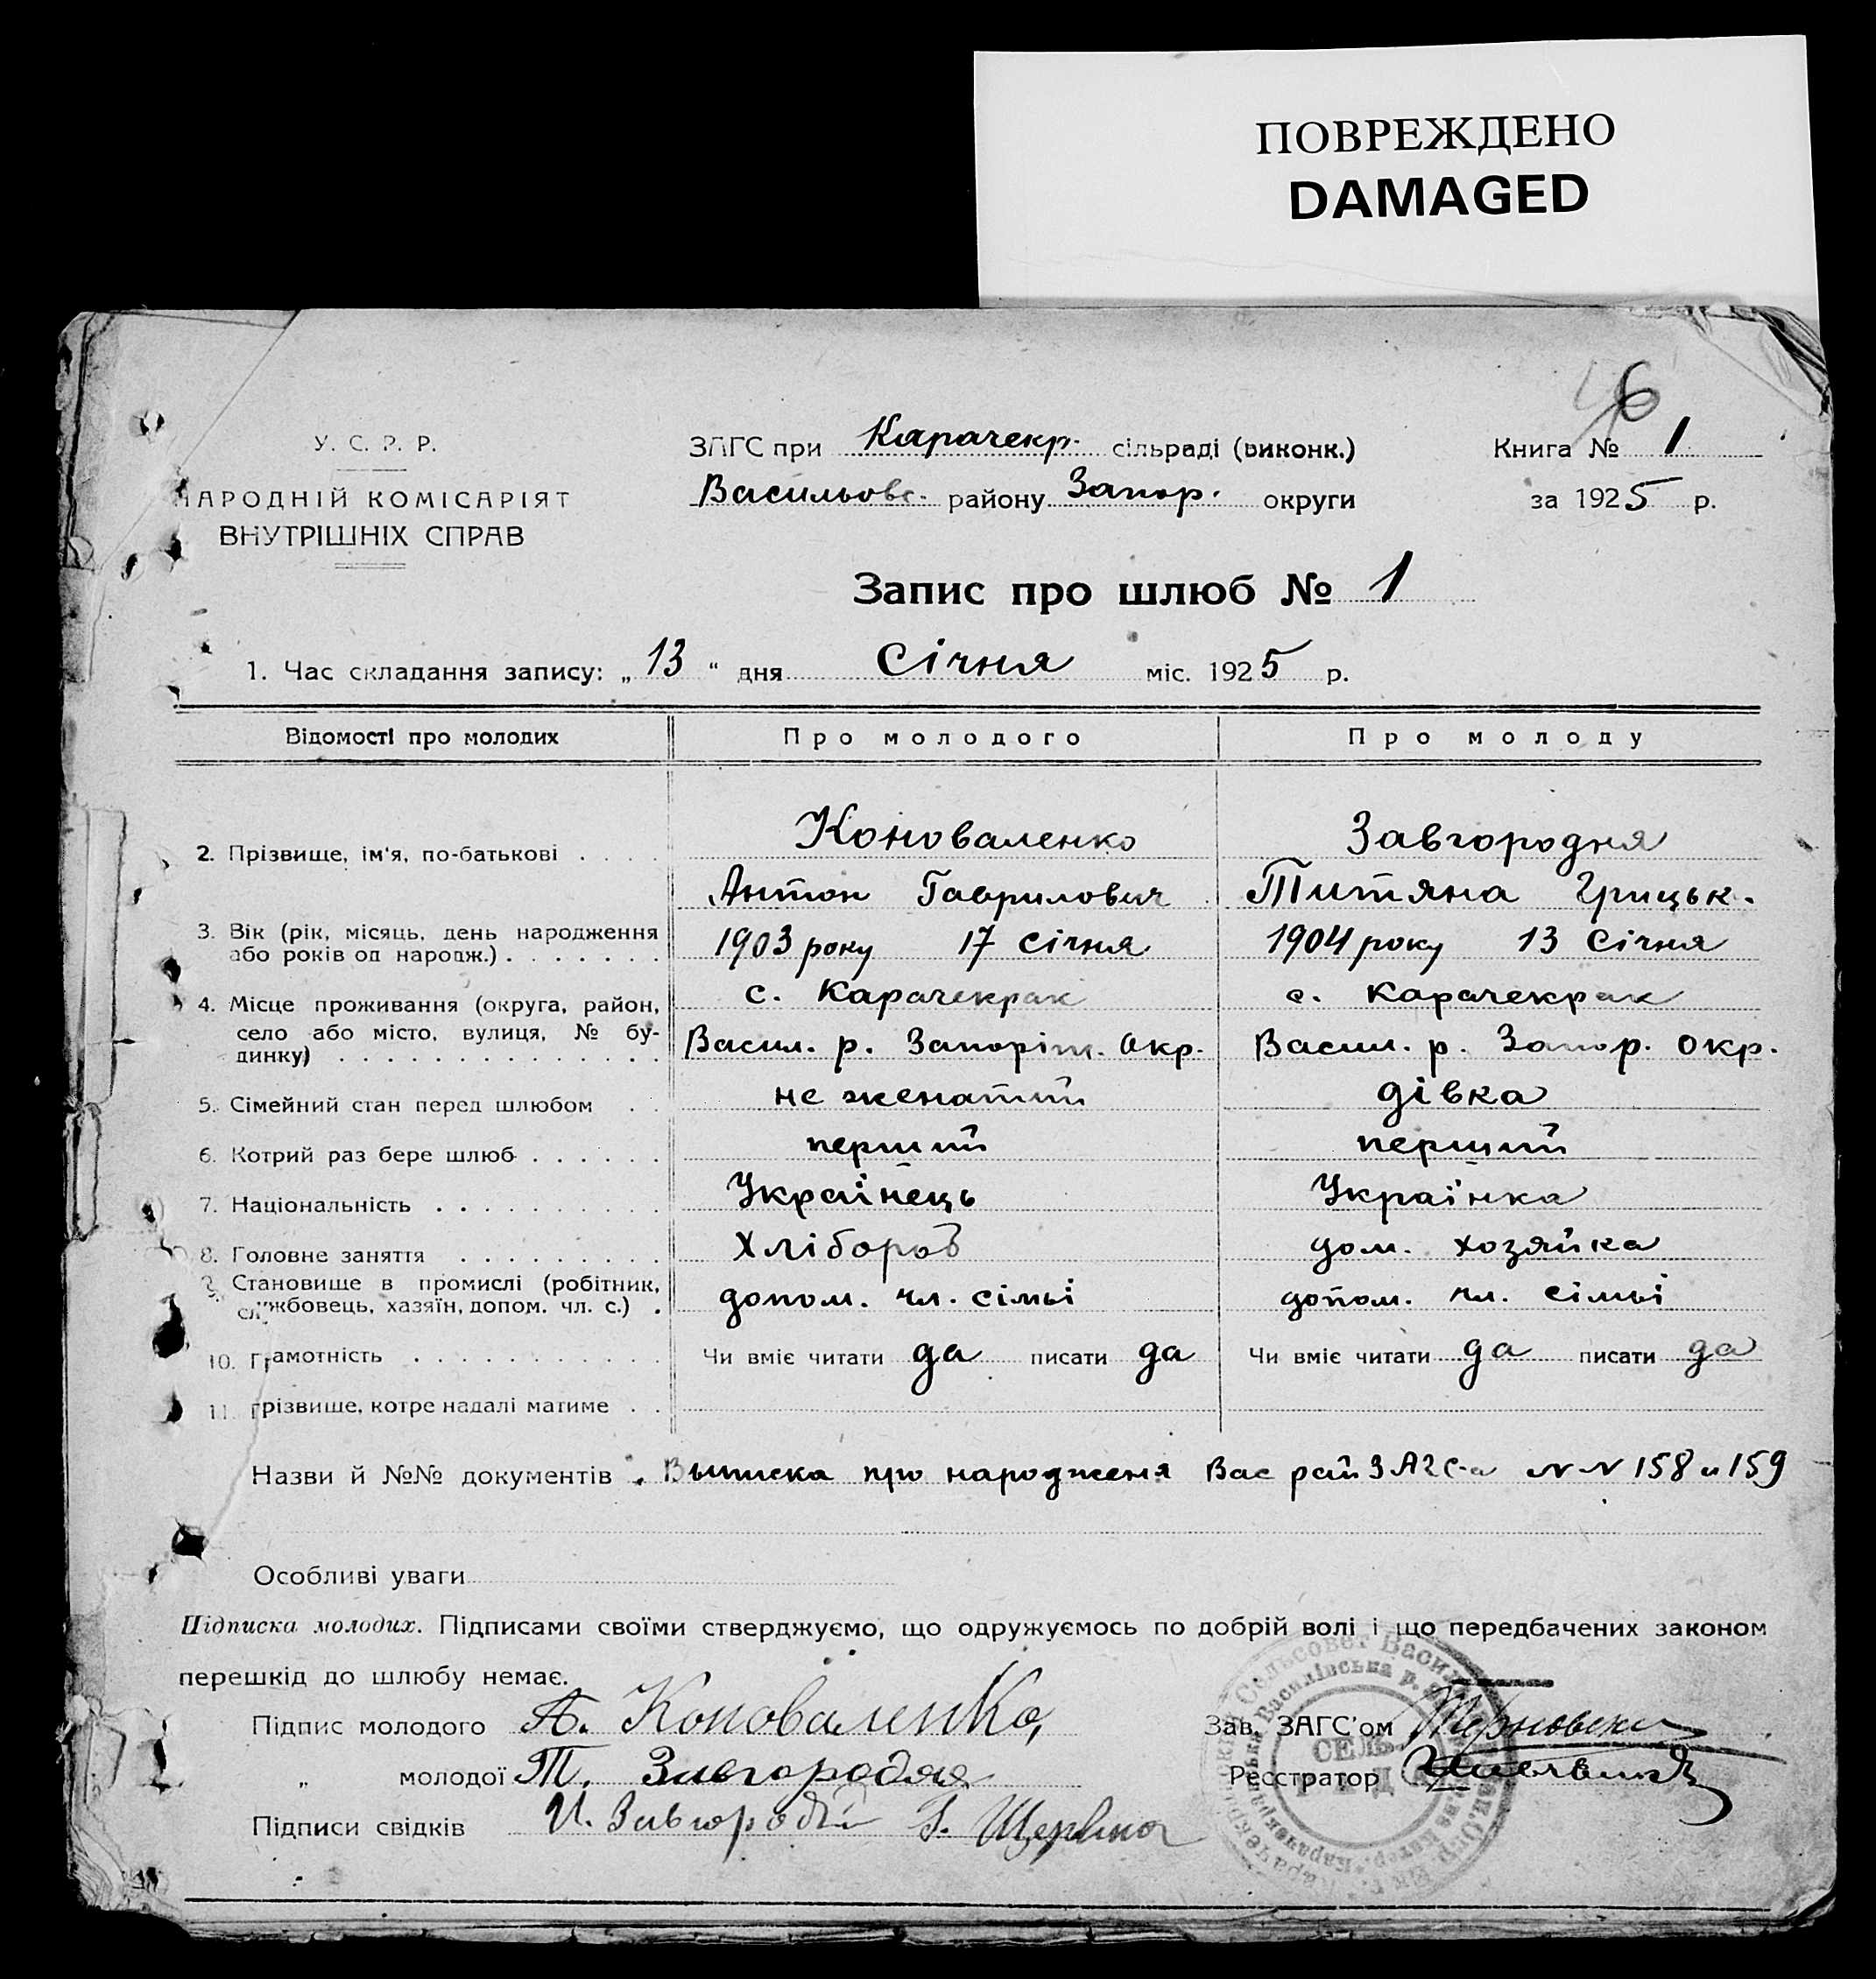 ПОВРЕЖДЕНО
DAMAGED
6
У. С. Р. Р.
НАРОДНІЙ КОМІСАРІЯТ
ВНУТРІШНІХ СПРАВ
ЗАГС при Карачекр. сільраді (виконк.)
Васильовс. району Запор. округи
Книга № 1
за 1925 р.
Запис про шлюб № 1
1. Час складання запису: „13“ дня Січня міс. 1925 р.
Відомості про молодих Про молодого Про молоду
2. Прізвище, ім'я, по-батькові . . . . Коноваленко Завгородня
Антон Гаврилович Титяна Грицьк.
3. Вік (рік, місяць, день народження або років од народж.) . . . . . . . 1903 року 17 Січня 1904 року 13 Січня
4. Місце проживання (округа, район, село або місто, вулиця, № будинку) с. Карачекрак с. Карачекрак
Васил. р. Запоріж. Окр. Васил. р. Запор. Окр.
5. Сімейний стан перед шлюбом . . не женатий дівка
6. Котрий раз бере шлюб . . . . . . перший перший
7. Національність . . . . . . . . . . Українець Українка
8. Головне заняття . . . . . . . . . Хлібороб дом. хозяйка
9. Становище в промислі (робітник, службовець, хазяїн, допом. чл. с.) . допом. чл. сімьі допом. чл. сімьі
10. Грамотність . . . . . . . . . . . Чи вміє читати да писати да Чи вміє читати да писати да
11. Прізвище, котре надалі матиме . .
Назви й №№ документів . Выписка про народженя Вас рай ЗАГС-а NN 158 и 159
Особливі уваги
Підписка молодих. Підписами своїми стверджуємо, що одружуємось по добрій волі і що передбачених законом
перешкід до шлюбу немає.
Підпис молодого А. Коноваленко, Зав. ЗАГС'ом
„ молодої Т. Завгородня Реєстратор
Підписи свідків И. Завгородій
СЕЛЬ